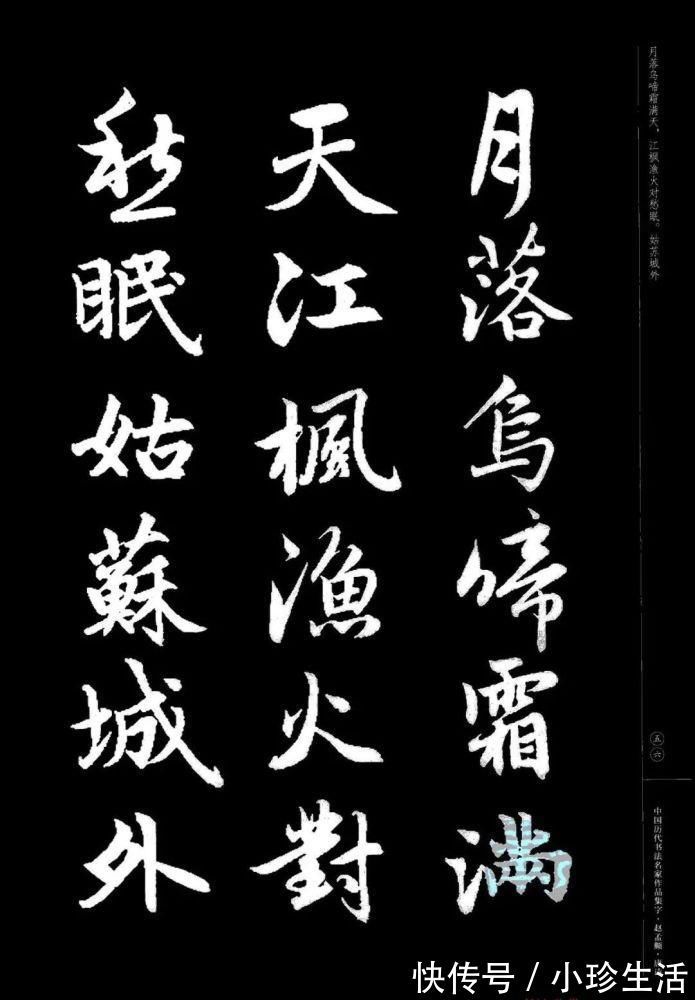 月落烏啼霜满
天江楓漁火對
愁眠姑蘇城外
月落乌啼霜满天，江枫渔火对愁眠。姑苏城外
五六
中国历代书法名家作品集字·赵孟頫·
快传号／小珍生活